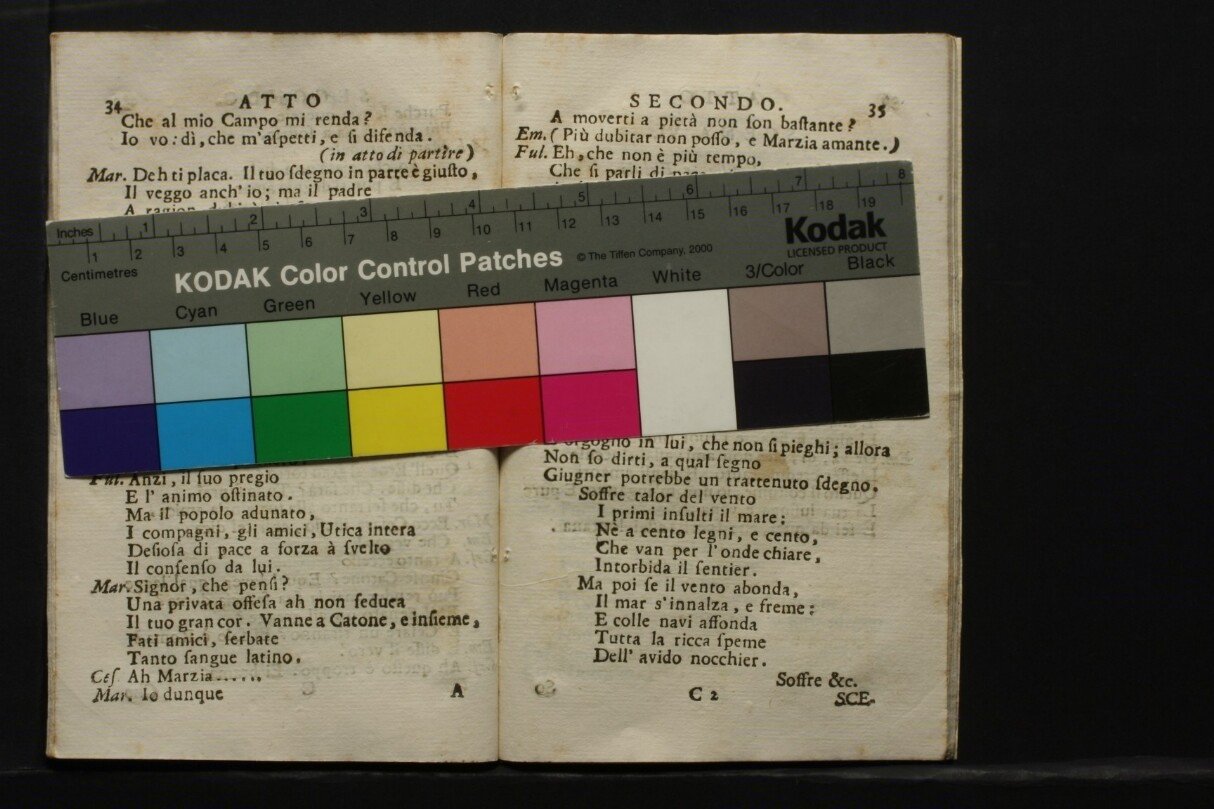 34 ATTO
Che al mio Campo mi renda?
Io vo: dì, che m'aſpetti, e ſi difenda.
(in atto di partire)
Mar. Deh ti placa. Il tuo ſdegno in parte è giuſto,
Il veggo anch' io; ma il padre
A ragion
Ful. Anzi, il ſuo pregio
E l' animo oſtinato.
Ma il popolo adunato,
I compagni, gli amici, Utica intera
Deſioſa di pace a forza à ſvelto
Il conſenſo da lui.
Mar. Signor, che penſi?
Una privata offeſa ah non ſeduca
Il tuo gran cor. Vanne a Catone, e inſieme,
Fati amici, ſerbate
Tanto ſangue latino.
Ceſ. Ah Marzia......
Mar. Io dunque
A
SECONDO. 35
A moverti a pietà non ſon baſtante?
Em. (Più dubitar non poſſo, e Marzia amante.)
Ful. Eh, che non è più tempo,
Che ſi parli di
orgoglio in lui, che non ſi pieghi; allora
Non ſo dirti, a qual ſegno
Giugner potrebbe un trattenuto ſdegno.
Soffre talor del vento
I primi inſulti il mare;
Nè a cento legni, e cento,
Che van per l'onde chiare,
Intorbida il ſentier.
Ma poi ſe il vento abonda,
Il mar s'innalza, e freme;
E colle navi affonda
Tutta la ricca ſpeme
Dell' avido nocchier.
Soffre &c.
C 2 SCE-
Inches 1 2 3 4 5 6 7 8
Centimetres 1 2 3 4 5 6 7 8 9 10 11 12 13 14 15 16 17 18 19
KODAK Color Control Patches © The Tiffen Company, 2000
Kodak
LICENSED PRODUCT
Blue Cyan Green Yellow Red Magenta White 3/Color Black